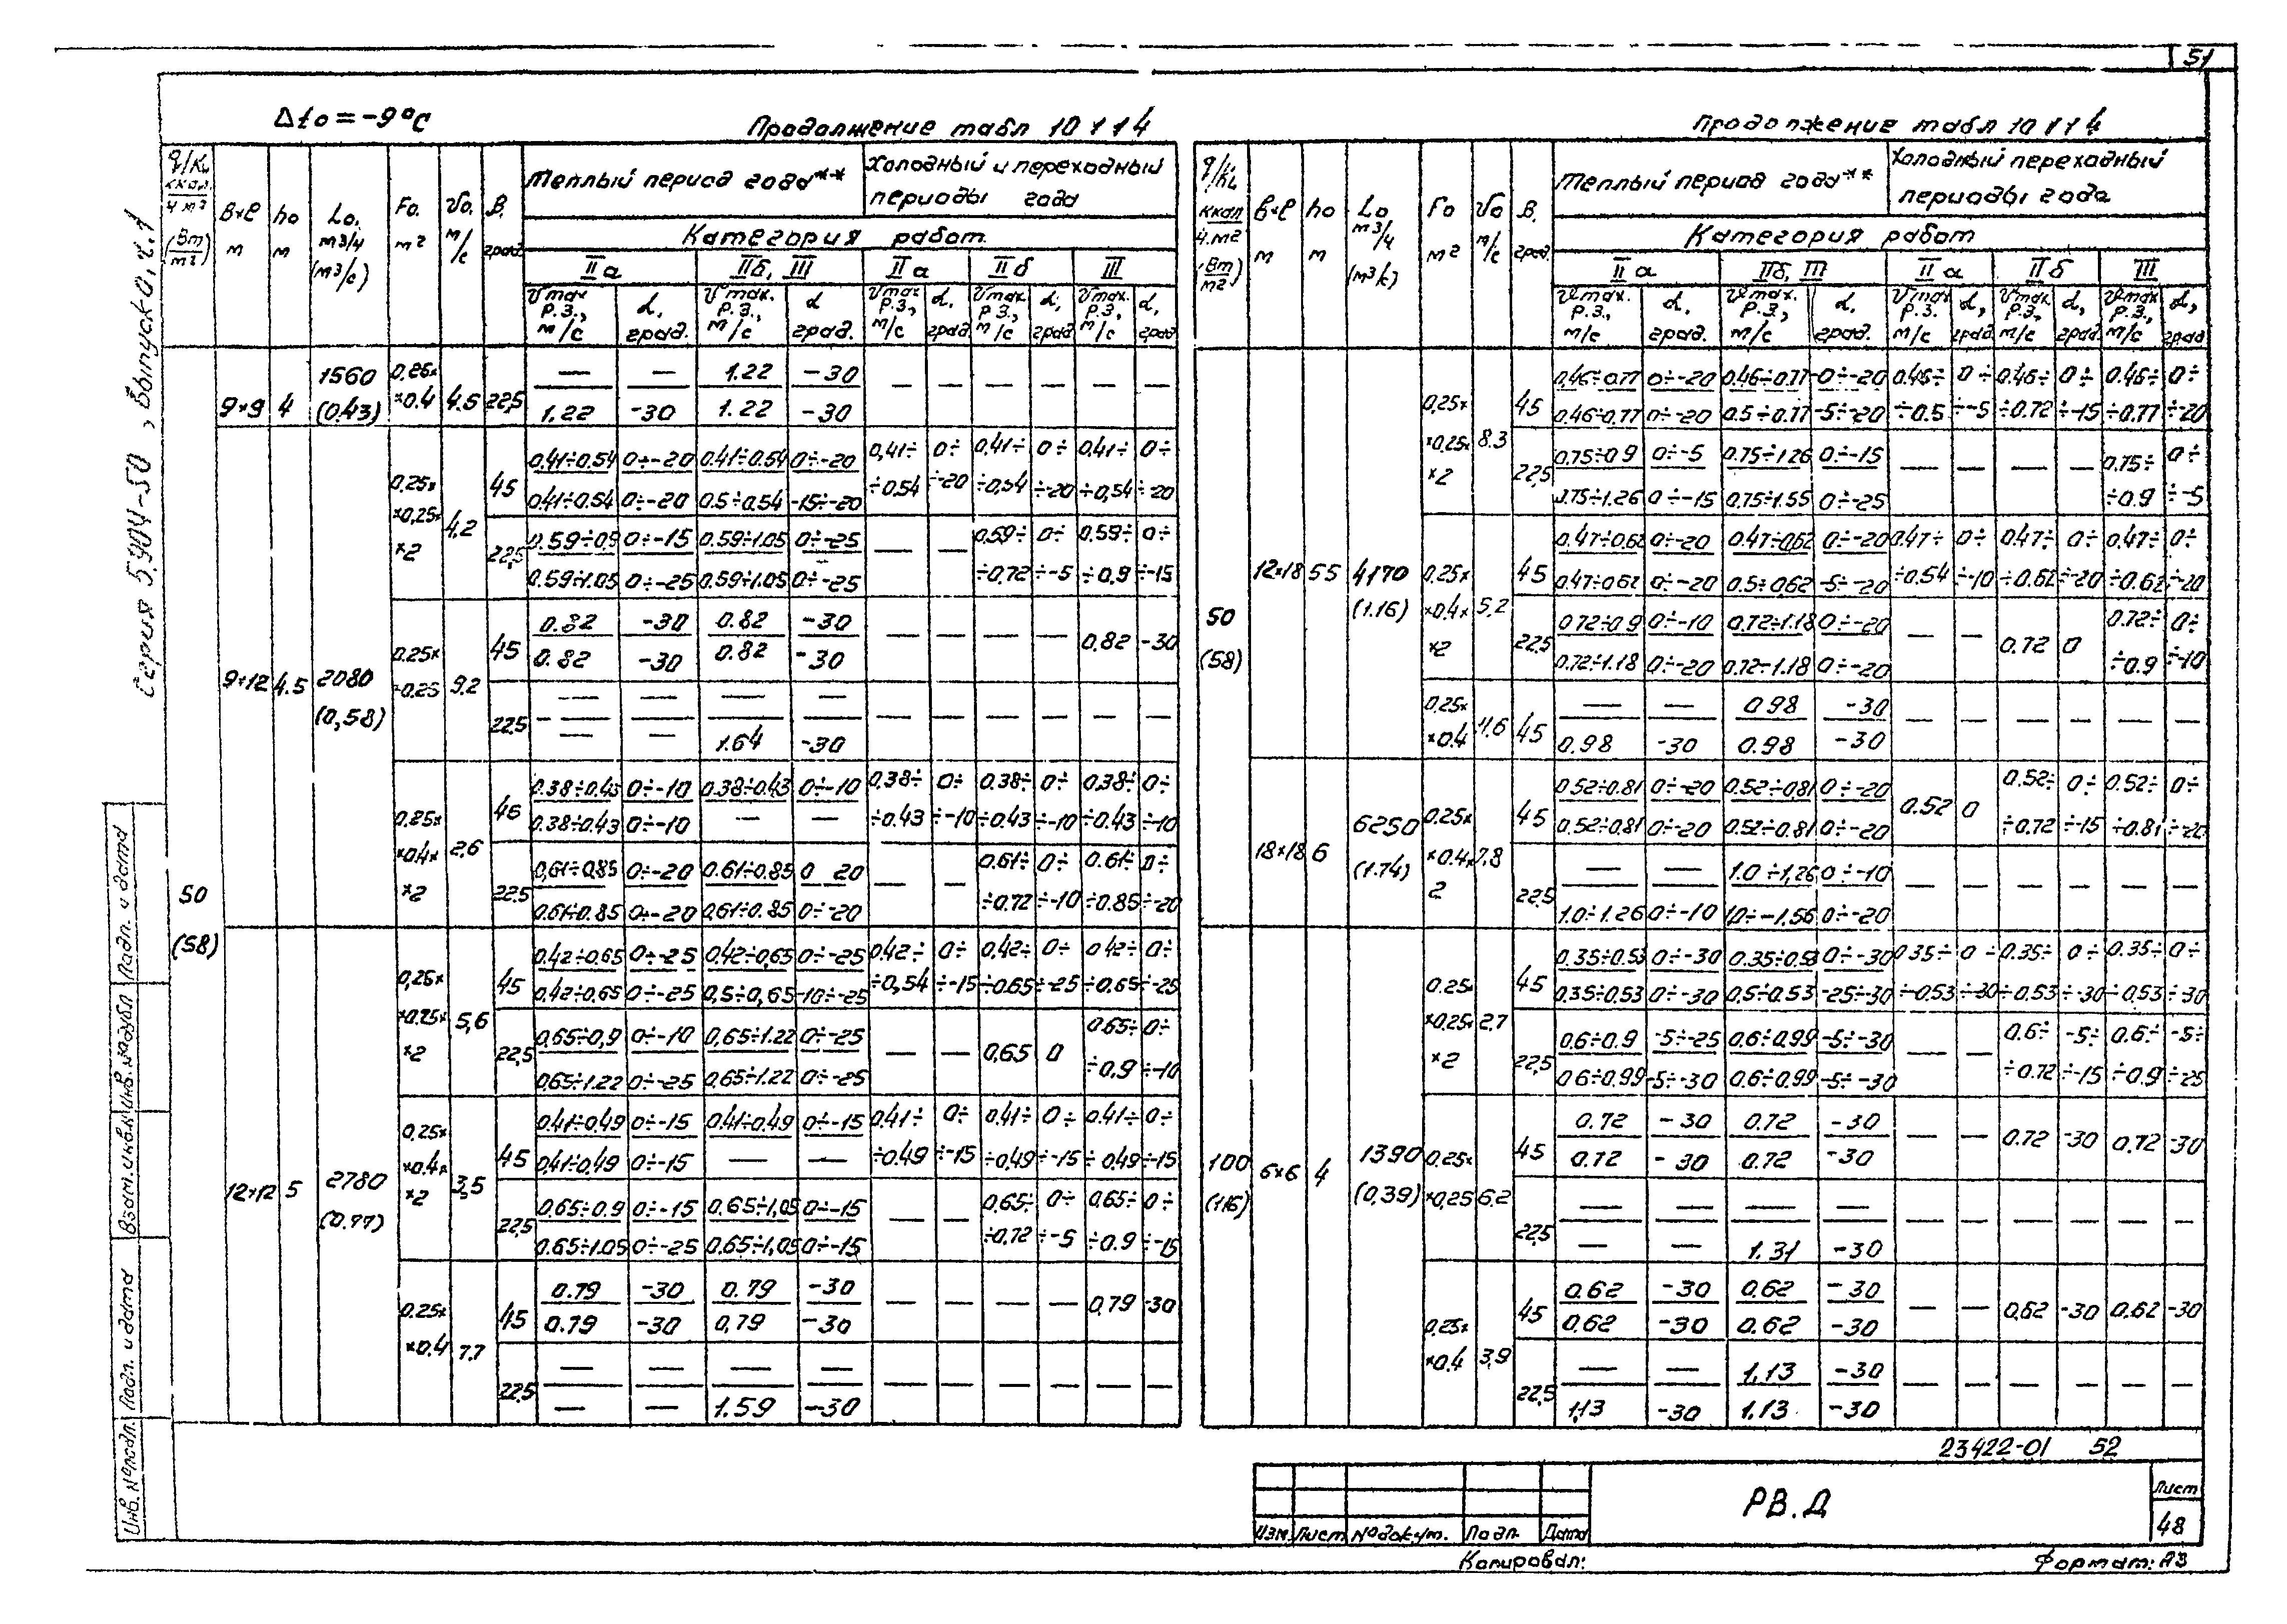 51
Δto = -9°C
Продолжение табл 10 1 1 4
Продолжение табл 10 1 1 4
Серия 5.904-50, выпуск 0, ч.1
q/KL ккал/ч м² (Вт/м²)
в×ℓ м
ho м
Lo. м3/ч (м3/с)
Fo. м²
Vo. м/с
В. град
Теплый период года**
Холодный и переходный периоды года
Категория работ
IIа IIб, III IIа IIб III
Vmax р.з., м/с α, град.
50 (58)
9×9 4 1560 (0.43) 0.25× ×0.4 4.6 22,5
— — 1.22 -30 — — — — — —
1.22 -30 1.22 -30
9×12 4.5 2080 (0,58)
0,25× ×0,25× ×2 4,2
45 0,41÷0.54 0÷-20 0.41÷0.54 0÷-20 0,41÷ ÷0.54 0÷ ÷-20 0,41÷ ÷0,54 0÷ ÷-20 0,41÷ ÷0,54 0÷ ÷-20
0.41÷0.54 0÷-20 0.5÷0.54 -15÷-20
22,5 0.59÷0,9 0÷-15 0.59÷1.05 0÷-25 — — 0,59÷ ÷0,72 0÷ ÷-5 0.59÷ ÷0,9 0÷ ÷-15
0.59÷1.05 0÷-25 0.59÷1.05 0÷-25
0.25× ×0.25 9,2
45 0.82 -30 0.82 -30 — — — — 0,82 -30
0.82 -30 0.82 -30
22.5 — — — — — — — — — —
— — 1.64 -30
0.25× ×0.4× ×2 2,6
46 0.38÷0.43 0÷-10 0.38÷0.43 0÷-10 0,38÷ ÷0.43 0÷ ÷-10 0.38÷ ÷0.43 0÷ ÷-10 0,38÷ ÷0.43 0÷ ÷-10
0.38÷0.43 0÷-10 — —
22.5 0,61÷0,85 0÷-20 0.61÷0.85 0 20 — — 0.61÷ ÷0.72 0÷ ÷-10 0.61÷ ÷0.85 0÷ ÷-20
0.61÷0.85 0÷-20 0,61÷0.85 0÷-20
12×12 5 2780 (0.77)
0,25× ×0.25× ×2 5,6
45 0.42÷0,65 0÷-25 0,42÷0,65 0÷-25 0,42÷ ÷0,54 0÷ ÷-15 0,42÷ ÷0.65 0÷ ÷-25 0.42÷ ÷0,65 0÷ ÷-25
0,42÷0,65 0÷-25 0,5÷0,65 -10÷-25
22,5 0,65÷0,9 0÷-10 0,65÷1.22 0÷-25 — — 0,65 0 0.65÷ ÷0.9 0÷ ÷-10
0,65÷1.22 0÷-25 0,65÷1.22 0÷-25
0,25× ×0.4× ×2 3,5
45 0,41÷0,49 0÷-15 0,41÷0,49 0÷-15 0.41÷ ÷0.49 0÷ ÷-15 0,41÷ ÷0,49 0÷ ÷-15 0.41÷ ÷0,49 0÷ ÷-15
0,41÷0,49 0÷-15 — —
22,5 0,65÷0.9 0÷-15 0.65÷1,05 0÷-15 — — 0,65÷ ÷0,72 0÷ ÷-5 0,65÷ ÷0.9 0÷ ÷-15
0.65÷1.05 0÷-25 0.65÷1,05 0÷-15
0.25× ×0.4 7,7
45 0.79 -30 0.79 -30 — — — — 0,79 -30
0.79 -30 0,79 -30
22,5 — — — — — — — — — —
— — 1.59 -30
q/KL ккал/ч.м² (Вт/м²)
в×ℓ м
ho м
Lo м3/ч (м3/с)
Fo м²
Vo м/с
В. град.
Теплый период года**
Холодный переходный периоды года
Категория работ
IIа IIб, III IIа IIб III
Vmax. р.з., м/с α, град.
50 (58)
12×18 55 4170 (1.16)
0,25× ×0.25× ×2 8.3
45 0,46÷0.77 0÷-20 0.46÷0.77 -0÷-20 0.45÷ ÷0.5 0÷ ÷-5 0.45÷ ÷0.72 0÷ ÷-15 0.45÷ ÷0.77 0÷ ÷-20
0.46÷0.77 0÷-20 0.5÷0.77 -5÷-20
22,5 0.75÷0.9 0÷-5 0.75÷1.26 0÷-15 — — — — 0.75÷ ÷0.9 0÷ ÷-5
0.75÷1.26 0÷-15 0.75÷1.55 0÷-25
0,25× ×0.4× ×2 5,2
45 0.47÷0,62 0÷-20 0.47÷0,62 0÷-20 0.47÷ ÷0.54 0÷ ÷-10 0.47÷ ÷0.62 0÷ ÷-20 0.47÷ ÷0.62 0÷ ÷-20
0,47÷0,62 0÷-20 0.5÷0.62 -5÷-20
22,5 0.72÷0.9 0÷-10 0.72÷1.18 0÷-20 — — 0.72 0 0.72÷ ÷0.9 0÷ ÷-10
0.72÷1.18 0÷-20 0.72÷1.18 0÷-20
0.25× ×0.4 11,6
45 — — 0.98 -30 — — — — — —
0.98 -30 0.98 -30
18×18 6 6250 (1.74)
0,25× ×0.4× 2 7,8
45 0.52÷0.81 0÷-20 0.52÷0,81 0÷-20 0.52 0 0.52÷ ÷0.72 0÷ ÷-15 0.52÷ ÷0.81 0÷ ÷-20
0.52÷0.81 0÷-20 0.52÷0.81 0÷-20
22,5 — — 1.0÷1,26 0÷-10 — — — — — —
1.0÷1.26 0÷-10 1,0÷-1.56 0÷-20
100 (116)
6×6 4 1390 (0,39)
0.25× ×0.25× ×2 2,7
45 0.35÷0.53 0÷-30 0.35÷0.53 0÷-30 0.35÷ ÷0.53 0÷ ÷-30 0.35÷ ÷0.53 0÷ ÷-30 0.35÷ ÷0,53 0÷ ÷-30
0,35÷0.53 0÷-30 0,5÷0.53 -25÷-30
22,5 0.6÷0.9 -5÷-25 0,6÷0.99 -5÷-30 — — 0.6÷ ÷0.72 -5÷ ÷-15 0.6÷ ÷0.9 -5÷ ÷-25
0.6÷0.99 -5÷-30 0.6÷0.99 -5÷-30
0.25× ×0,25 6.2
45 0.72 -30 0.72 -30 — — 0.72 -30 0,72 -30
0.72 -30 0.72 -30
22,5 — — — — — — — — — —
— — 1.31 -30
0,25× ×0.4 3,9
45 0.62 -30 0,62 -30 — — 0,62 -30 0.62 -30
0,62 -30 0.62 -30
22,5 — — 1,13 -30 — — — — — —
1,13 -30 1,13 -30
23422-01 52
РВ.Д
Лист
48
Изм. Лист № докум. Подп. Дата
Копировал:
Формат: А3
Инв. № подл. Подп. и дата Взам. инв. № Инв. № дубл Подп. и дата